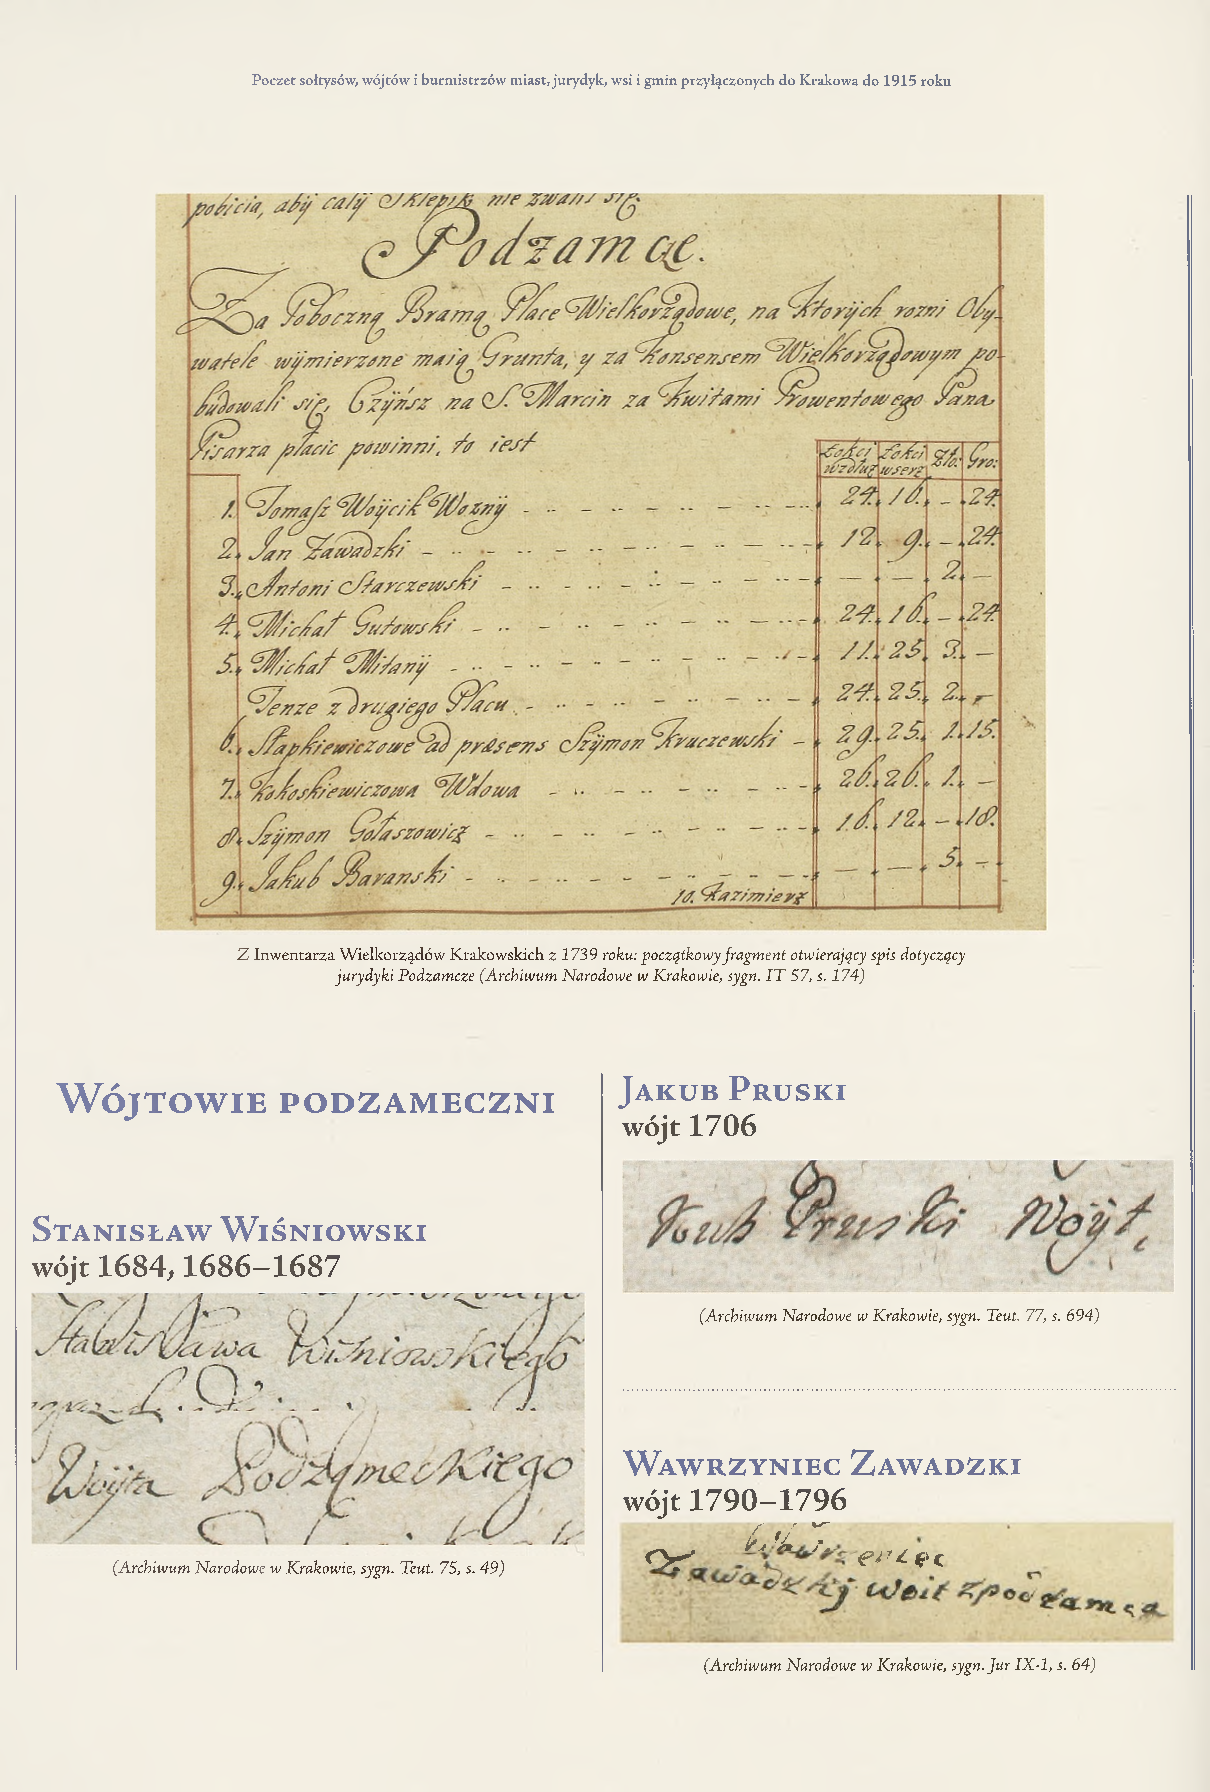 Poczet sołtysów, wójtów i burmistrzów miast, jurydyk, wsi i gmin przyłączonych do Krakowa do 1915 roku
pobicia, aby cały Sklepik nie zwalił się.
Podzamcze.
Za Poboczną Bramą Place Wielkorządowe, na Ktorÿch rozni Oby-
watele wÿmierzone maią Grunta, y za Konsensem Wielkorządowym po-
budowali się, Czÿnsz na S. Marcin za Kwitami Prowentowego Pana
Pisarza płacic powinni, to iest
Łokci wzdłuż Łokci wserz Zło: Gro:
1. Tomasz Woÿcik Woznÿ 24. 16. – 24.
2. Jan Zawadzki 12. 9. – 24.
3. Antoni Starczewski – – 2. –
4. Michał Gutowski 24. 16. – 24.
5. Michał Mitanÿ 11. 25. 3. –
Tenze z drugiego Placu 24. 25. 2. –
6. Słapkiewiczowe ad præsens Szÿmon Kruczewski 29. 25. 1. 15.
7. Kokoskiewiczowa Wdowa 26. 26. 1. –
8. Szÿmon Gołaszowicz 16. 12. – 18.
9. Jakub Baranski – – 5. –
10. Kazimierz
Z Inwentarza Wielkorządów Krakowskich z 1739 roku: początkowy fragment otwierający spis dotyczący
jurydyki Podzamcze (Archiwum Narodowe w Krakowie, sygn. IT 57, s. 174)
Wójtowie podzameczni
Stanisław Wiśniowski
wójt 1684, 1686–1687
Stanisława Wiśniowskiego
Woÿta Podzameckiego
(Archiwum Narodowe w Krakowie, sygn. Teut. 75, s. 49)
Jakub Pruski
wójt 1706
Pruski Woÿt,
(Archiwum Narodowe w Krakowie, sygn. Teut. 77, s. 694)
Wawrzyniec Zawadzki
wójt 1790–1796
Wawrzeniec
Zawadzkij woit zpodzamca
(Archiwum Narodowe w Krakowie, sygn. Jur IX-1, s. 64)